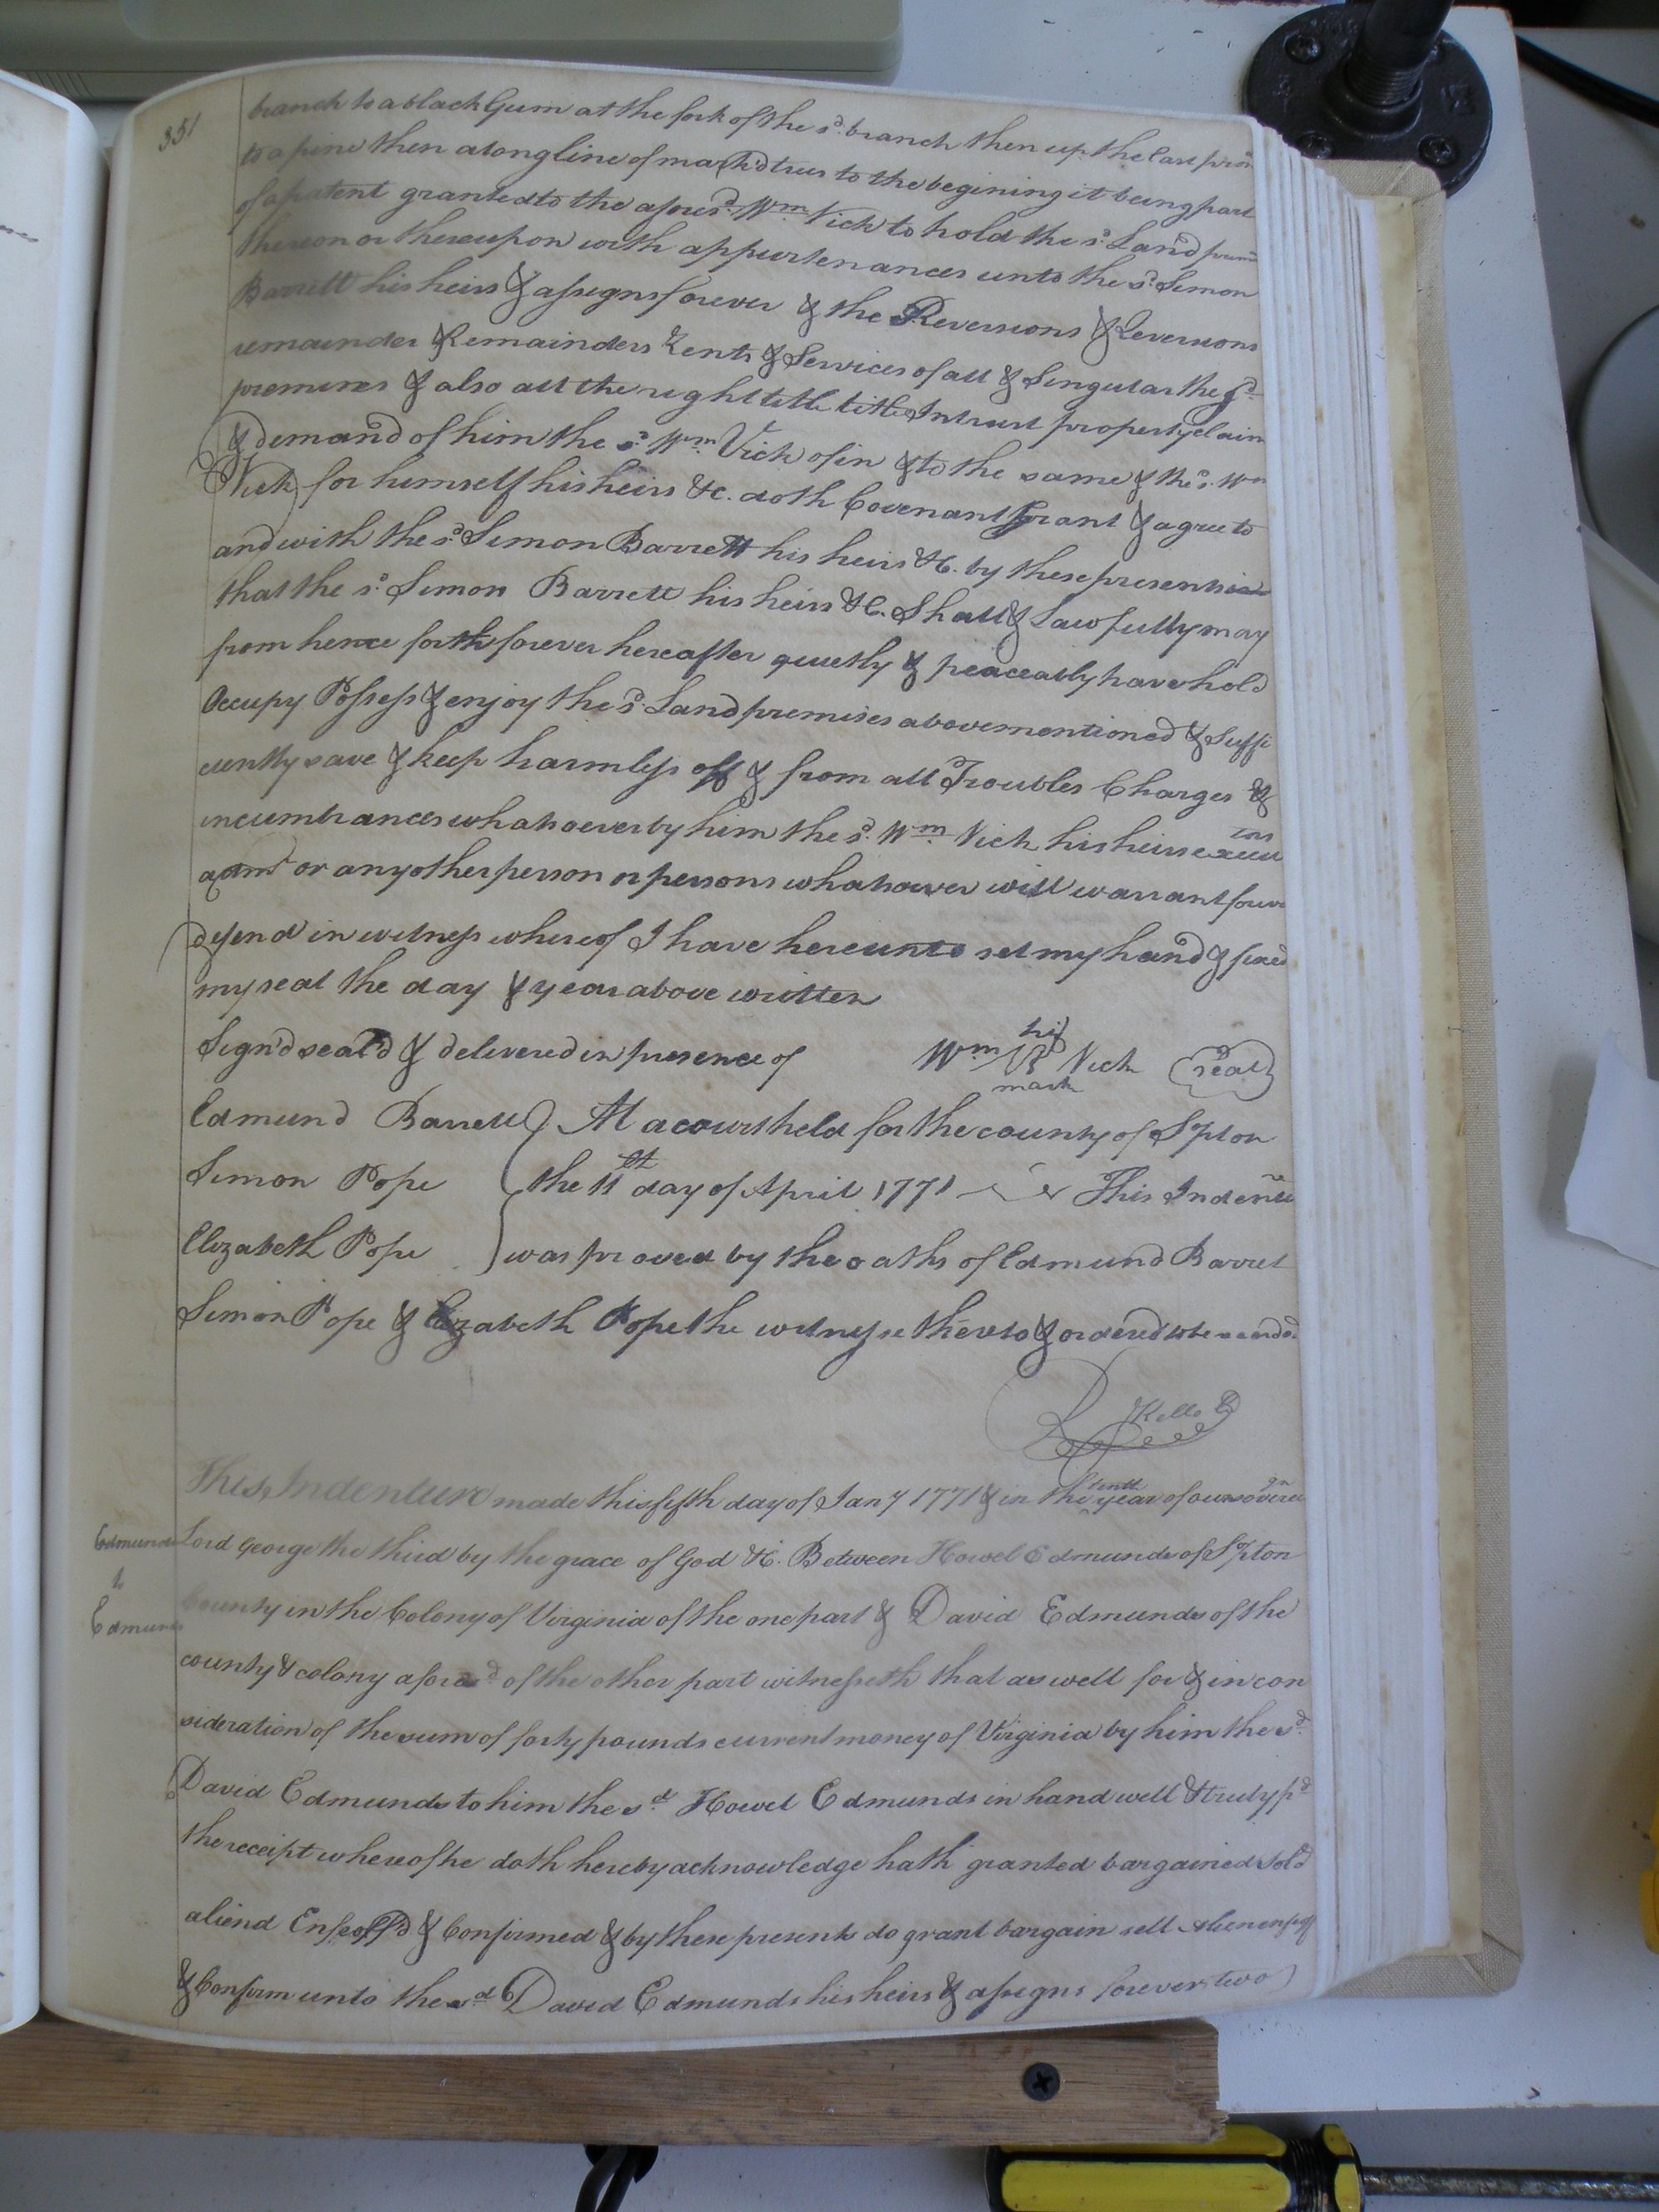 351
branch to a black Gum at the fork of the sd. branch then up the East prong
to a pine then along line of markd trees to the begining it being part
of a patent granted to the aforesd. Wm. Vick to hold the sd. Land
thereon or thereupon with appurtenances unto the sd. Simon
Barrett his heirs & assigns forever & the Reversions & Reversions
remainder & Remainders Rents & Services of all & Singular the sd.
premises & also all the right title title Intrust property claim
& demand of him the sd. Wm. Vick of in & to the same & the sd. Wm
Vick for himself his heirs &c. doth Covenant Grant & agree to
and with the sd. Simon Barrett his heirs &c. by these presents
that the sd. Simon Barrett his heirs &c. Shall & Lawfully may
from hence forth forever hereafter quietly & peaceably have hold
Occupy Possess & enjoy the sd. Land premises abovementioned & Suffi
ciently save & keep harmless off & from all Troubles Charges &
incumbrances whatsoever by him the sd. Wm. Vick his heirs execu
tors
admr or any other person or persons whatsoever will warrant forever
defend in witness whereof I have hereunto set my hand & fixed
my seal the day & year above written
Sign'd seal'd & delivered in presence of
his
Wm Vick seal
mark
Edmund Barrett At a court held for the county of S'pton
Simon Pope the 11th day of April 1771 This Indenture
Elizabeth Pope was proved by the oaths of Edmund Barret
Simon Pope & Elizabeth Pope the witnesse thereto & ordered to be recorded
R Kello C
This Indenture made this fifth day of Jany 1771 & in the tenth year of our sovereign
Edmunds
Lord George the third by the grace of God &c. Between Howel Edmunds of S'pton
to
County in the Colony of Virginia of the one part & David Edmunds of the
Edmunds
county & colony aforesd of the other part witnesseth that as well for & in con
sideration of the sum of forty pounds current money of Virginia by him the sd.
David Edmunds to him the sd. Howel Edmunds in hand well & truly pd
the receipt whereof he doth hereby acknowledge hath granted bargained sold
aliend Enfeoff'd & Confirmed & by these presents do grant bargain sell alien enfeoff
& Confirm unto the sd David Edmunds his heirs & assigns forever two